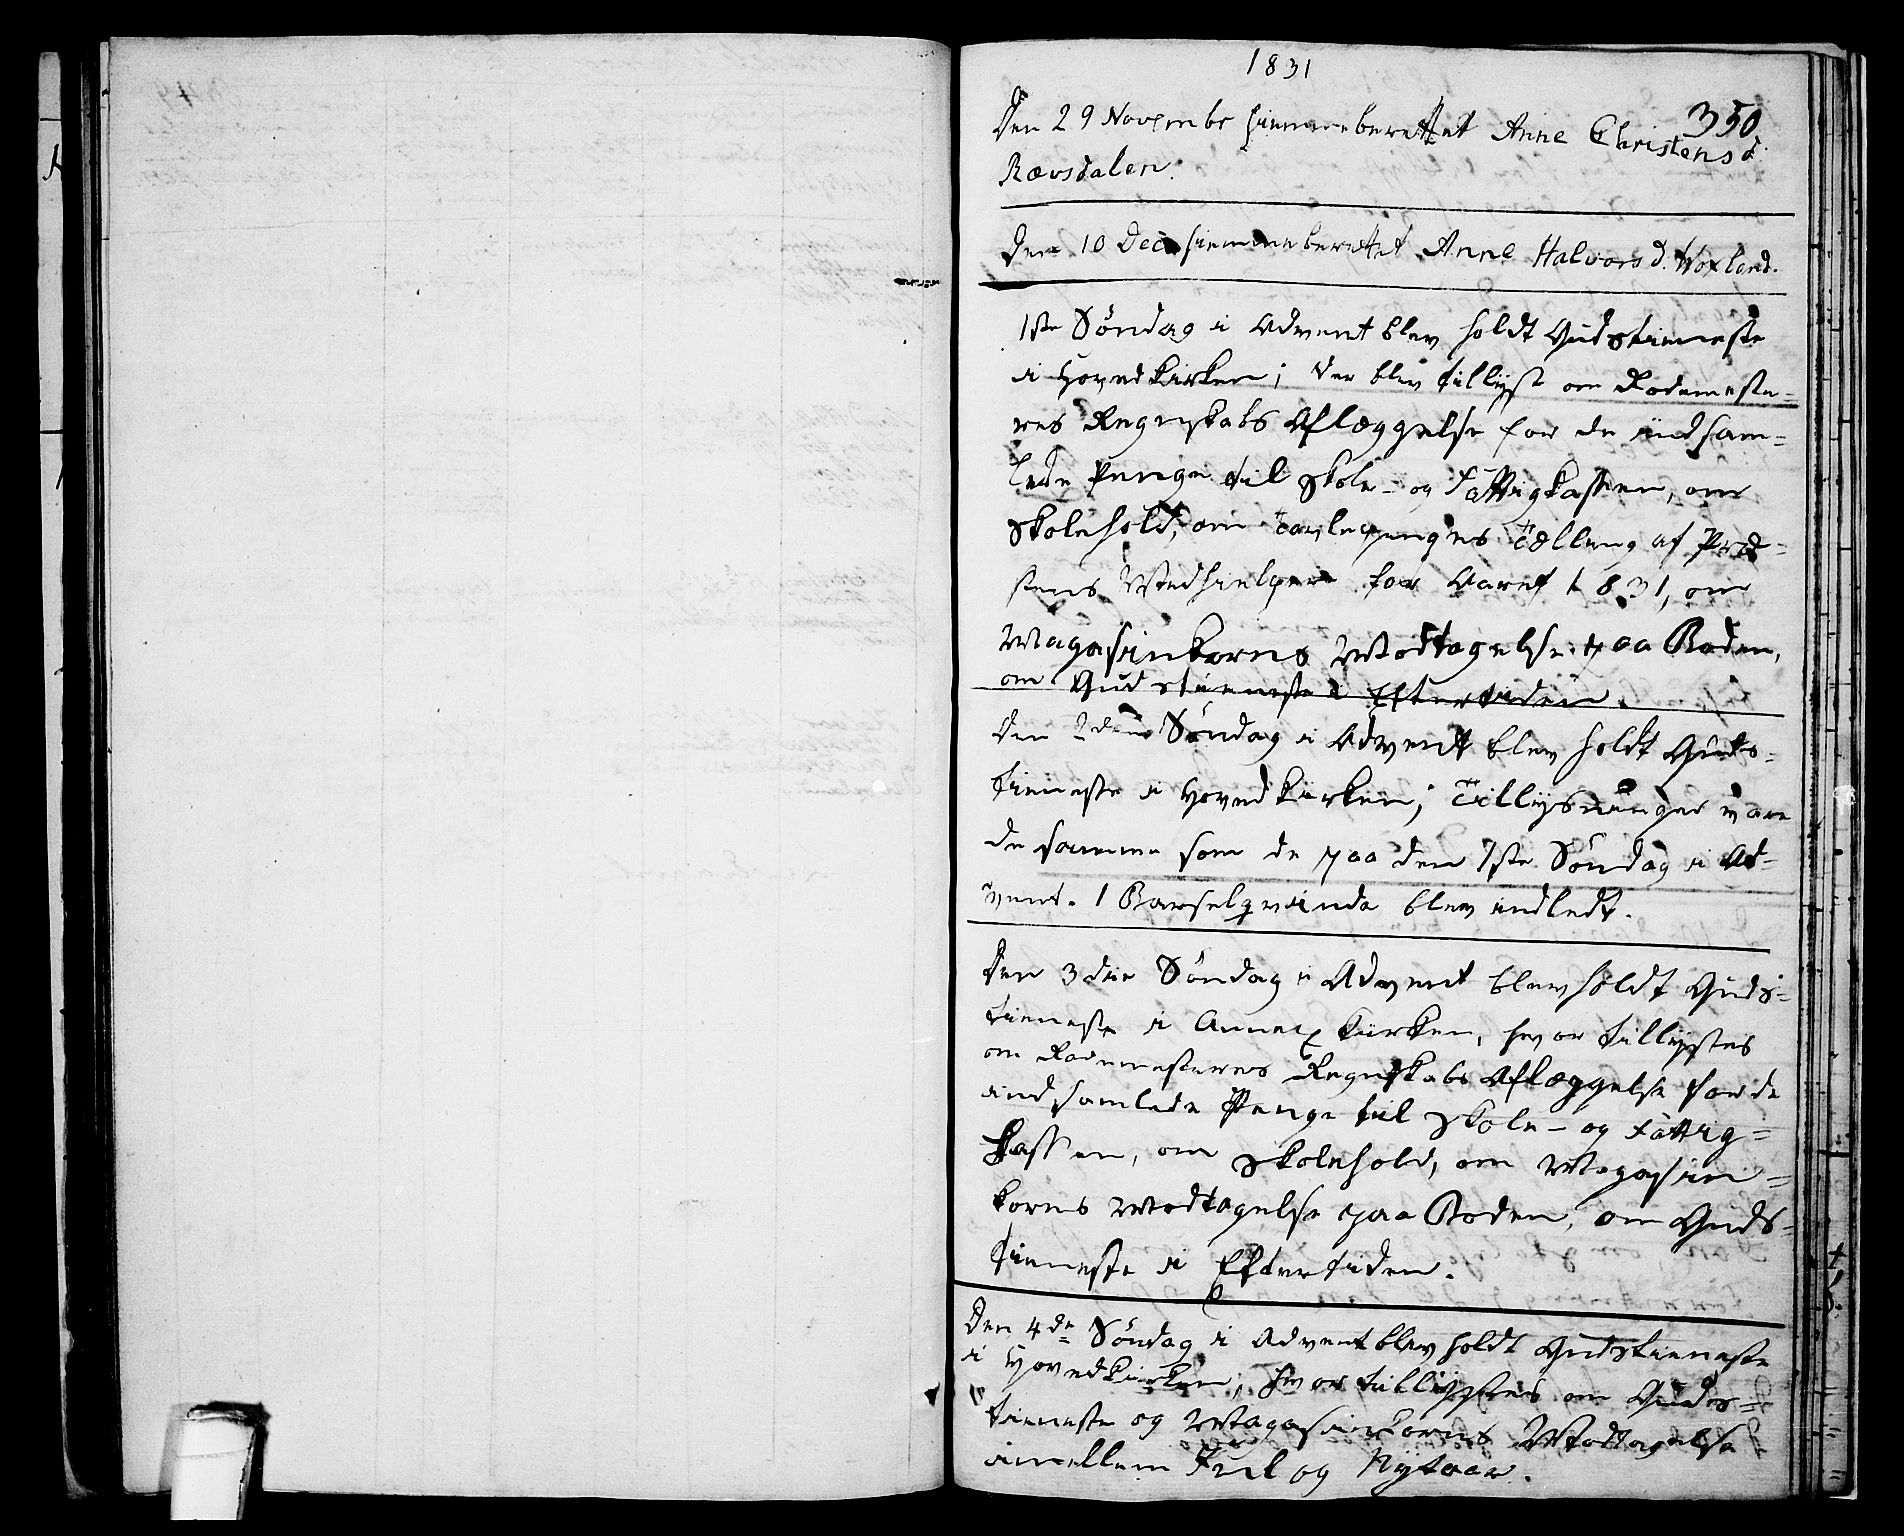 1831
350
Den 29 Novembr hiemmeberettet Anne Christensd.
Rævsdalen.
Den 10 Dec. hiemmeberettet Anne Halvorsd. Woxland.
1ste Søndag i Advent blev holdt Gudstieneste
i Hovedkirken; der blev tillyst om Rodemeste-
res Regnskabs Aflæggelse for de indsam-
lede Penge til Skole- og Fattigkassen, om
Skolehold, om Tavlepenges Tælling af Præ-
stens Medhielpere for Aaret 1831, om
Magasinkorns Modtagelse paa Boden,
om Gudstieneste i Eftertiden.
Den 2den Søndag i Advent blev holdt Guds-
tieneste i Hovedkirken; Tillysninger vare
de samme som de paa den 1ste Søndag i Ad-
vent. 1 Barselqvinde blev indledt.
Den 3die Søndag i Advent blev holdt Guds-
tieneste i Annex Kirken, hvor tillystes
om Rodemesteres Regnskabs Aflæggelse for de
indsamlede Penge til Skole- og Fattig-
kassen, om Skolehold, om Magasin-
korns Modtagelse paa Boden, om Guds-
tieneste i Eftertiden.
Den 4de Søndag i Advent blev holdt Gudstieneste
i Hovedkirken, hvor tillystes om Guds-
tieneste og Magasinkorns Modtagelse
imellem Juul og Nytaar.